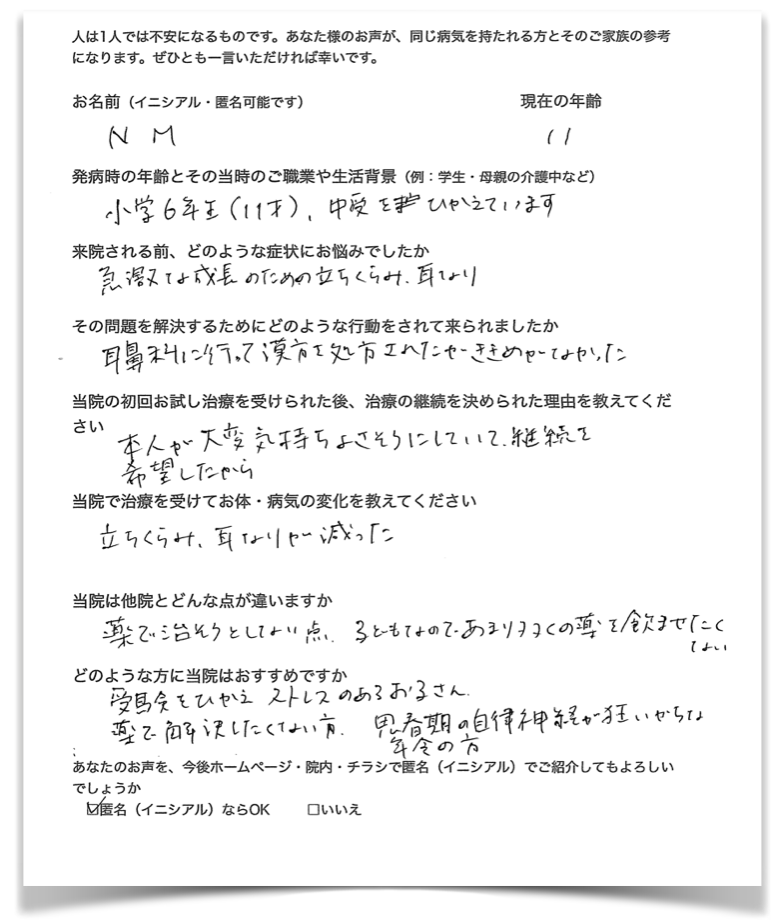 人は1人では不安になるものです。あなた様のお声が、同じ病気を持たれる方とそのご家族の参考
になります。ぜひとも一言いただければ幸いです。
お名前（イニシアル・匿名可能です） 現在の年齢
N M 11
発病時の年齢とその当時のご職業や生活背景（例：学生・母親の介護中など）
小学6年生(11才)、中受を ひかえています
来院される前、どのような症状にお悩みでしたか
急激な成長のための立ちくらみ、耳なり
その問題を解決するためにどのような行動をされて来られましたか
耳鼻科に行って漢方を処方されたがききめがなかった
当院の初回お試し治療を受けられた後、治療の継続を決められた理由を教えてくだ
さい
本人が大変気持ちよさそうにしていて、継続を
希望したから
当院で治療を受けてお体・病気の変化を教えてください
立ちくらみ、耳なりが減った
当院は他院とどんな点が違いますか
薬で治そうとしない点、子どもなので、あまり多くの薬を飲ませたく
ない
どのような方に当院はおすすめですか
受験をひかえ ストレスのあるお子さん、
薬で解決したくない方、思春期の自律神経が狂いがちな
年令の方
あなたのお声を、今後ホームページ・院内・チラシで匿名（イニシアル）でご紹介してもよろしい
でしょうか
☑匿名（イニシアル）ならOK □いいえ